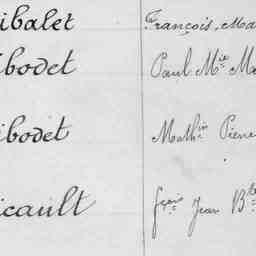 ibalet François, Ma
bodet Paul Mie Ma
ibodet Mathin Pierre
icault fçois Jean Bte